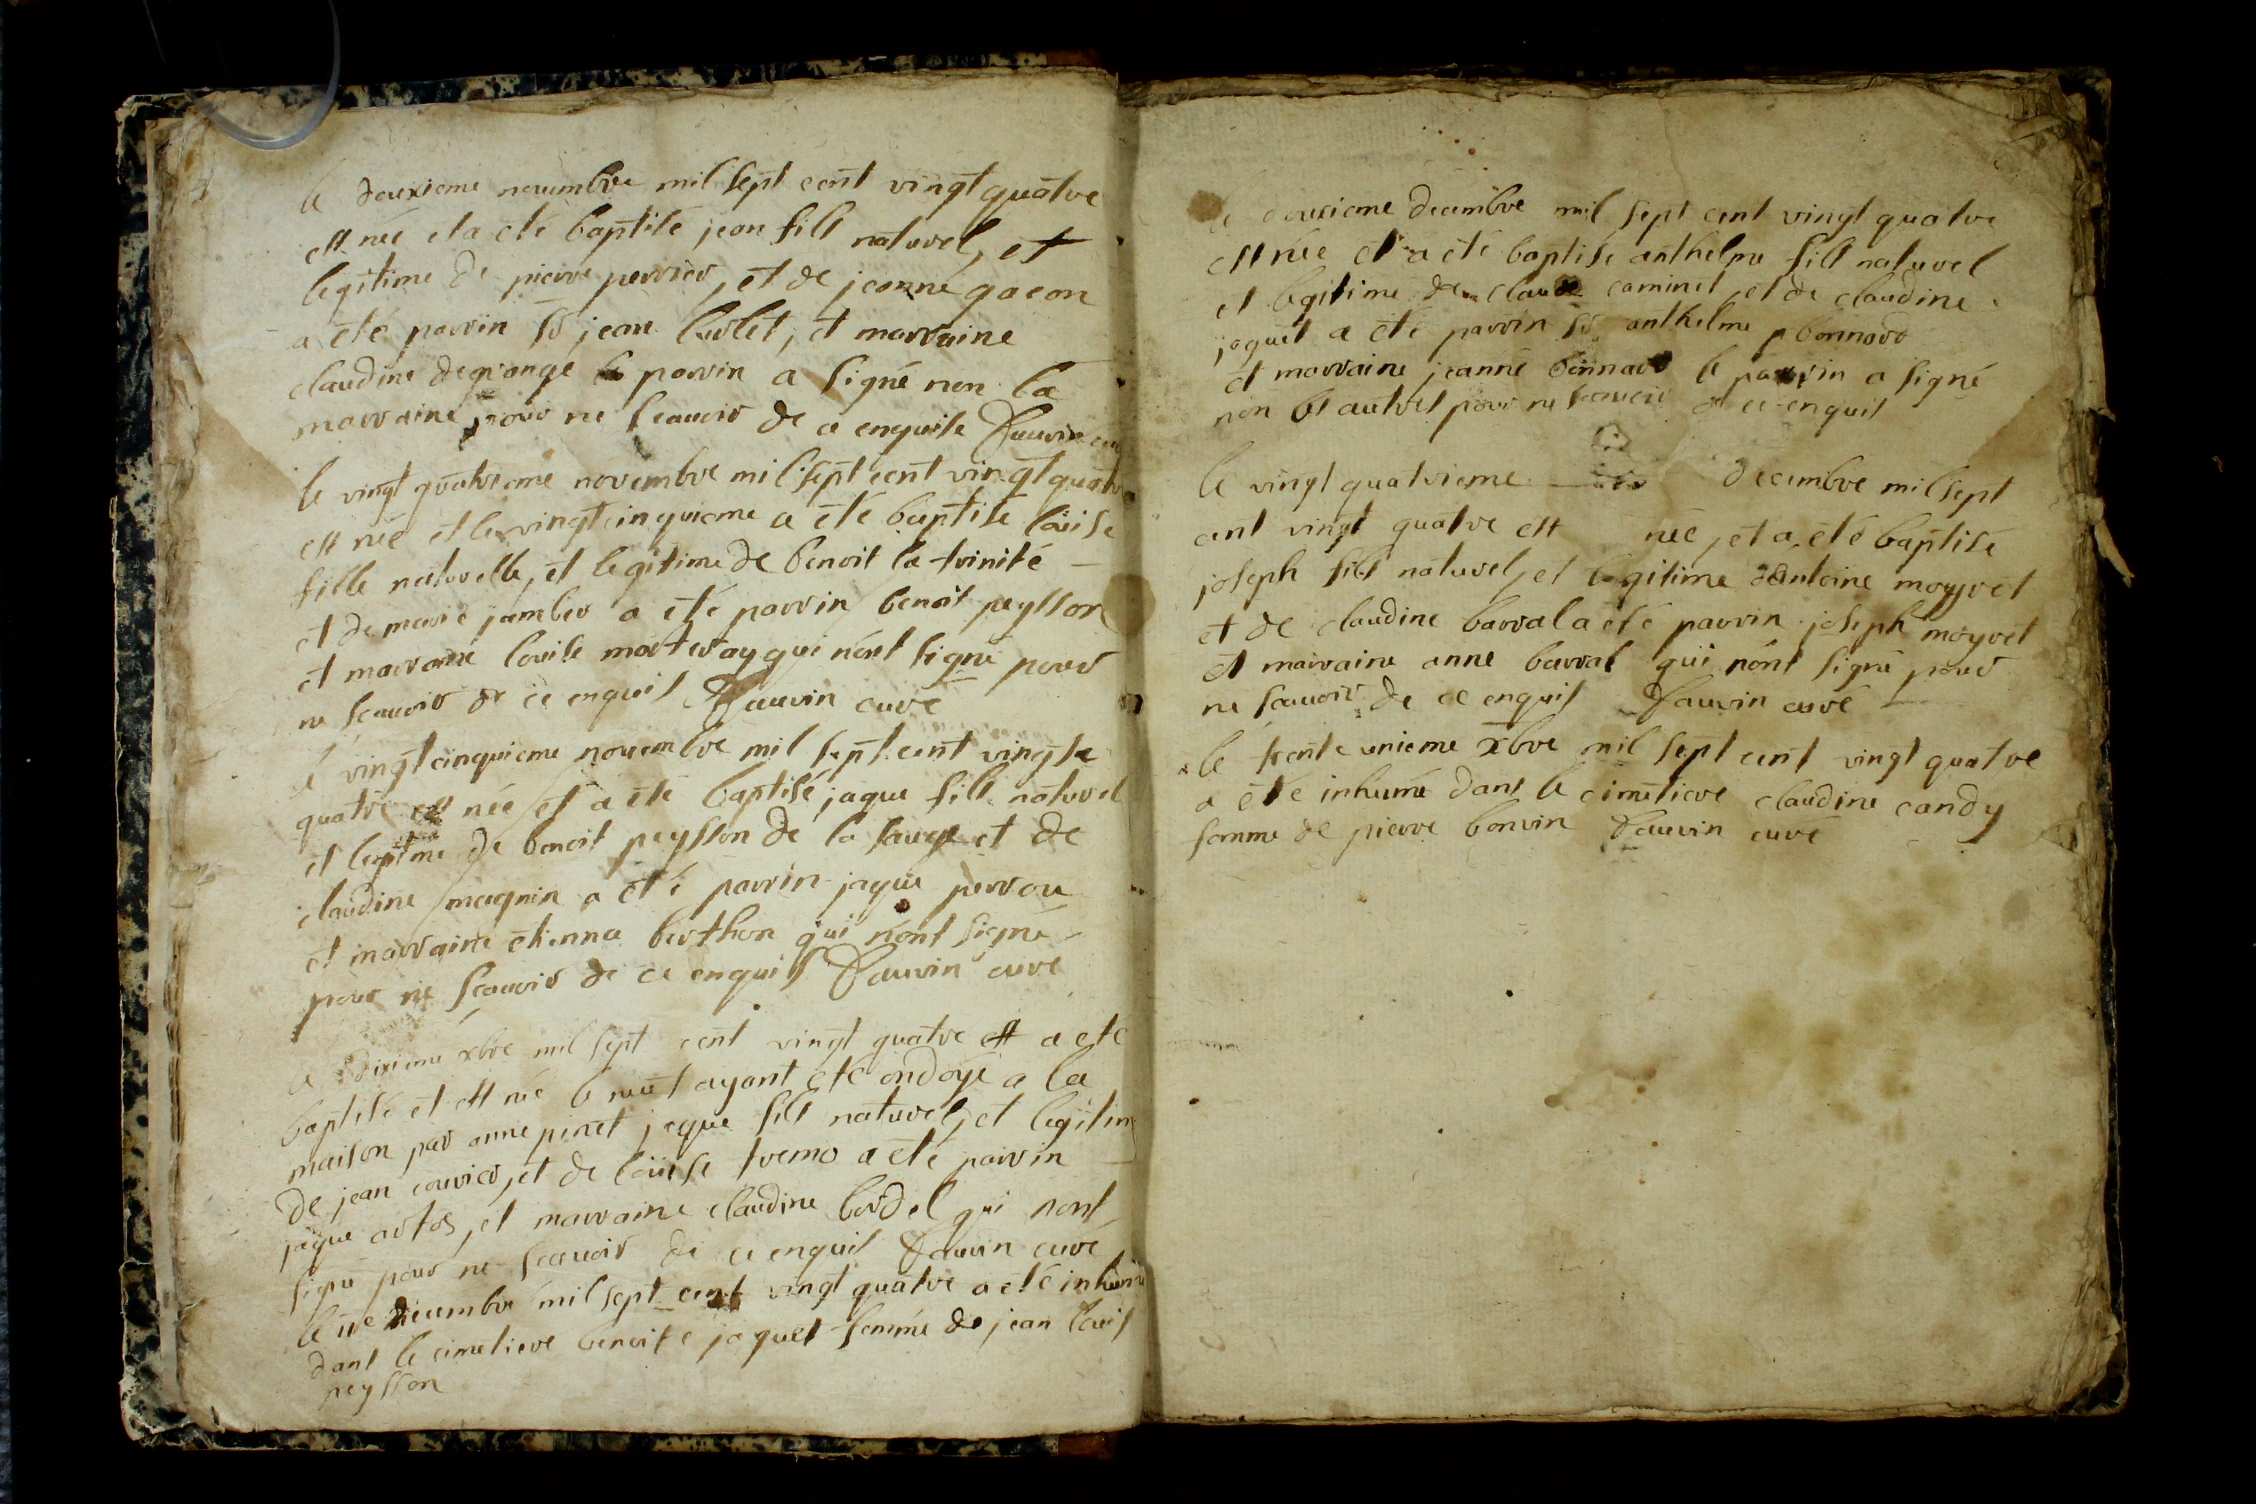 le deuxieme nouembre mil sept cent vingt quatre
est née et a été baptisé jean fils naturel, et
legitime de pierre perrier, et de jeanne gacon
a été parrin sr jean burlet, et marraine
claudine degrange le parrin a signé non la
marraine pour ne scauoir de ce enquise Fauurin curé
le vingt quatrieme novembre mil sept cent vingt quatre
est née et le vingt cinquieme a été baptisé loüise
fille naturelle, et legitime de benoit la trinité
et de marie jamber a été parrin benoit peysson
et marraine louise morteray qui n'ont signé pour
ne scauoir de ce enquis Fauurin curé
le vingt cinquieme nouembre mil sept cent vingt e
quatre est née et a été baptisé jaque fils naturel
et legitime de benoit peysson de la sauge et de
claudine magnin a été parrin jaque perrou
et marraine étienna berthon qui n'ont signé
pour ne scauoir de ce enquis Fauurin curé
le dixieme xbre mil sept cent vingt quatre est a été
baptisé et est née le neuf ayant été ondoyé a la
maison par anne pinet jaque fils naturel, et legitime
de jean couvier, et de loüise tremo a été parrin
jaque artos, et marraine claudine bordel qui nont
signé pour ne scauoir de ce enquis Fauurin curé
le 11e decembre mil sept cent vingt quatre a été inhumé
dans le cimetiere benoite jaquet femme de jean louis
peysson
le douzieme decembre mil sept cent vingt quatre
est née et a été baptisé anthelme fils naturel
et legitime de claude caminet, et de claudine
jaquet a été parrin sr anthelme p bonnard
et marraine jeanne bonnard le parrin a signé
non les autres pour ne scauoir de ce enquis
le vingt quatrieme decembre mil sept
cent vingt quatre est née, et a été baptisé
joseph fils naturel, et legitime d'antoine moyret
et de claudine barral a été parrin joseph moyret
et marraine anne barral qui n'ont signé pour
ne scauoir de ce enquis Fauurin curé
le trente unieme xbre mil sept cent vingt quatre
a été inhumé dans le cimetiere claudine candy
femme de pierre bonvin Fauurin curé